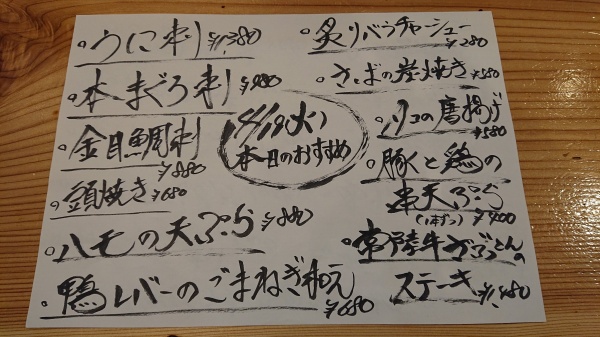 うに刺 ¥1,380
本まぐろ刺 ¥980
金目鯛刺 ¥880
頭焼き ¥680
ハモの天ぷら ¥880
鴨レバーのごまねぎ和え ¥680
(火)
本日のおすすめ
炙りバラチャーシュー ¥280
さばの炭焼き ¥580
タコの唐揚げ ¥580
豚と鶏の
串天ぷら
(1本ずつ) ¥400
常陸牛がぶとんの
ステーキ ¥1,480